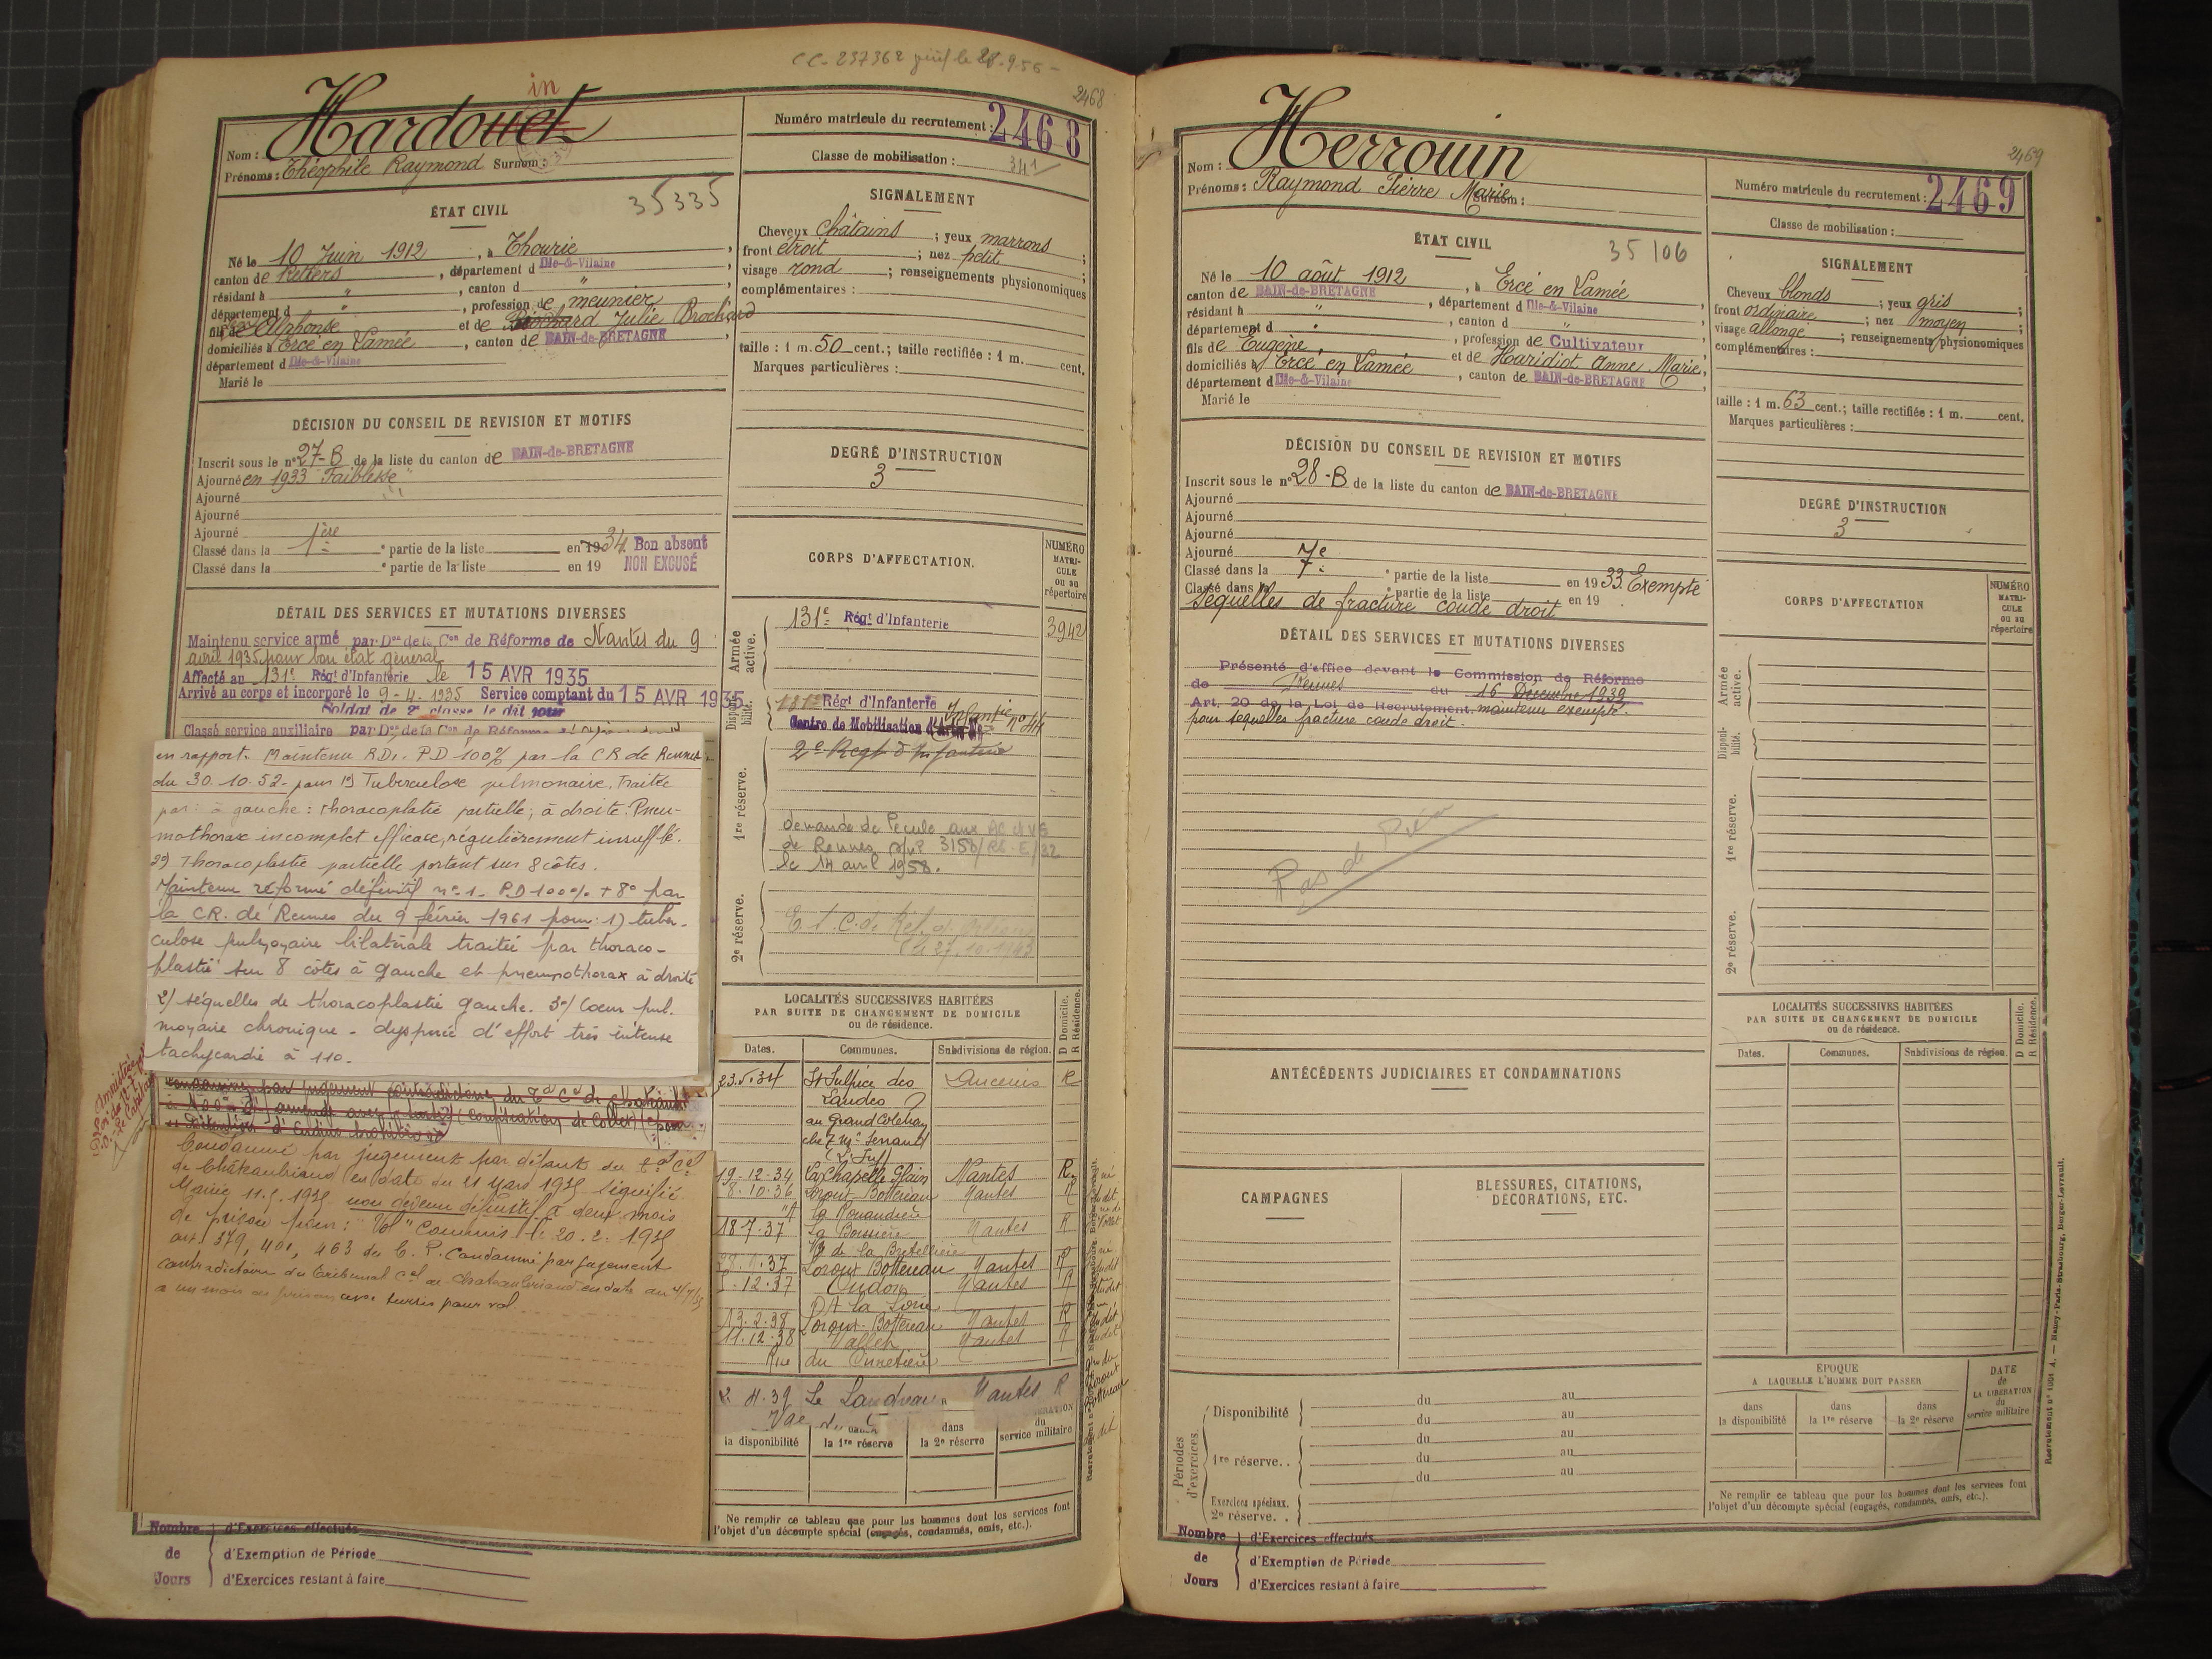 CC-237362
le 28.9.56 -
2468
in
Hardouet
Nom :
Prénoms : Théophile Raymond Surnom :
Numéro matricule du recrutement : 2468
Classe de mobilisation : 341
ÉTAT CIVIL
35335
Né le 10 Juin 1912, à Thourie
canton de Retiers, département d Ille-&-Vilaine,
résidant à ", canton d "
département d ", profession de meunier
fils de Alphonse et de Brochard Julie Brochard
domiciliés à Ercé en Lamée, canton de BAIN-de-BRETAGNE
département d Ille-&-Vilaine
Marié le
SIGNALEMENT
Cheveux châtains ; yeux marrons ;
front étroit ; nez petit ;
visage rond ; renseignements physionomiques
complémentaires :
taille : 1 m. 50 cent.; taille rectifiée : 1 m. cent.
Marques particulières :
DÉCISION DU CONSEIL DE REVISION ET MOTIFS
Inscrit sous le n° 27-B de la liste du canton de BAIN-de-BRETAGNE
Ajourné en 1933 "Faiblesse"
Ajourné
Ajourné
Ajourné
Classé dans la 1ère partie de la liste en 1934. Bon absent
NON EXCUSÉ
Classé dans la e partie de la liste en 19
DEGRÉ D'INSTRUCTION
3
DÉTAIL DES SERVICES ET MUTATIONS DIVERSES
Maintenu service armé par Don de la Con de Réforme de Nantes du 9
avril 1935 pour bon état général
Affecté au 131e Régt d'Infanterie le 15 AVR 1935
Arrivé au corps et incorporé le 9-4-1935 Service comptant du 15 AVR 1935
Soldat de 2e classe le dit jour
Classé service auxiliaire par Don de la Con de Réforme
en rapport. Maintenu RD1. PD 100% par la CR de Rennes
du 30.10.52 - pour 1°) Tuberculose pulmonaire. Traitée
par : à gauche : Thoracoplatie partielle ; à droite : Pneu-
mothorax incomplet efficace, régulièrement insufflé.
2°) Thoracoplastie partielle portant sur 8 côtes.
Maintenu réformé définitif n° 1 - P.D 100% + 8° par
la CR. de Rennes du 9 février 1961 pour : 1) tuber-
culose pulmonaire bilatérale traitée par thoraco-
plastie sur 8 côtes à gauche et pneumothorax à droite
2/ séquelles de thoracoplastie gauche. 3°/ Coeur pul-
monaire chronique - dyspnée d'effort très intense
tachycardie à 110.
Condamné par jugement contradictoire du
amende avec
Condamné par jugement par défaut du Tal Cel
de Châteaubriand en date du 21 Mars 1935 signifié
Mairie 11.5.1935 non devenu définitif à deux mois
de prison pour : "Vol" commis le 20.2.1935
art. 379, 401, 463 du C. P. Condamné par jugement
contradictoire du tribunal cel de Chateaubriand en date du 4/7/35
a un mois de prison avec sursis pour vol
CORPS D'AFFECTATION.
NUMÉRO MATRI- CULE ou au répertoire
Armée active.
131e Régt d'Infanterie 3942
Disponi- bilité.
131e Régt d'Infanterie
Centre de Mobilisation d'Infanterie n° 44
1re réserve.
2e Regt d'Infanterie
demande de Pécule aux AC et VG
de Rennes
le 14 avril 1958.
2e réserve.
LOCALITÉS SUCCESSIVES HABITÉES
PAR SUITE DE CHANGEMENT DE DOMICILE
ou de résidence.
D Domicile. R Résidence.
Dates. Communes. Subdivisions de région.
23.5.34 St Sulpice des Ancenis R
Landes
au Grand
chez Mr
19.12.34 La Chapelle Glain Nantes R
8.10.36 Loroux-Bottereau Nantes R
18.7.37 La Boissière Nantes R
Vge de la Bretellière
Loroux Bottereau Nantes R
12.37 Oudon Nantes R
13.2.38 Loroux-Bottereau Nantes R
11.12.38 Vallet Nantes R
Rue du Cimetière
4.39 Le Landreau Nantes R
dans
la disponibilité la 1re réserve la 2e réserve service militaire
Ne remplir ce tableau que pour les hommes dont les services font
l'objet d'un décompte spécial (engagés, condamnés, omis, etc.).
Nombre de Jours
d'Exercices effectués
d'Exemption de Période
d'Exercices restant à faire
2469
Herrouin
Nom :
Prénoms : Raymond Pierre Marie Surnom :
Numéro matricule du recrutement : 2469
Classe de mobilisation :
ÉTAT CIVIL
35106
Né le 10 août 1912, à Ercé en Lamée
canton de BAIN-de-BRETAGNE, département d Ille-&-Vilaine,
résidant à ", canton d "
département d ", profession de Cultivateur
fils de Eugène, et de Haridiot Anne Marie,
domiciliés à Ercé en Lamée, canton de BAIN-de-BRETAGNE
département d Ille-&-Vilaine
Marié le
SIGNALEMENT
Cheveux blonds ; yeux gris ;
front ordinaire ; nez moyen ;
visage allongé ; renseignements physionomiques
complémentaires :
taille : 1 m. 63 cent.; taille rectifiée : 1 m. cent.
Marques particulières :
DÉCISION DU CONSEIL DE REVISION ET MOTIFS
Inscrit sous le n° 28-B de la liste du canton de BAIN-de-BRETAGNE
Ajourné
Ajourné
Ajourné
Ajourné
Classé dans la 7e partie de la liste en 1933. Exempté
Classé dans la e partie de la liste en 19
Séquelles de fracture coude droit
DEGRÉ D'INSTRUCTION
3
DÉTAIL DES SERVICES ET MUTATIONS DIVERSES
Présenté d'office devant la Commission de Réforme
de Rennes du 16 Décembre 1939
Art. 20 de la Loi de Recrutement. maintenu exempté.
pour séquelles fracture coude droit.
Pas de
CORPS D'AFFECTATION
NUMÉRO MATRI- CULE ou au répertoire
Armée active.
Disponi- bilité.
1re réserve.
2e réserve.
ANTÉCÉDENTS JUDICIAIRES ET CONDAMNATIONS
CAMPAGNES
BLESSURES, CITATIONS, DÉCORATIONS, ETC.
LOCALITÉS SUCCESSIVES HABITÉES
PAR SUITE DE CHANGEMENT DE DOMICILE
ou de résidence.
D Domicile. R Résidence.
Dates. Communes. Subdivisions de région.
Périodes d'exercices.
Disponibilité du au
du au
1re réserve.. du au
du au
du au
Exercices spéciaux.
2e réserve. .
ÉPOQUE
A LAQUELLE L'HOMME DOIT PASSER
dans la disponibilité
dans la 1re réserve
dans la 2e réserve
DATE de LA LIBÉRATION du service militaire
Ne remplir ce tableau que pour les hommes dont les services font
l'objet d'un décompte spécial (engagés, condamnés, omis, etc.).
Nombre de Jours
d'Exercices effectués
d'Exemption de Période
d'Exercices restant à faire
Recrutement n° 1001 A. — Nancy-Paris-Strasbourg, Berger-Levrault.